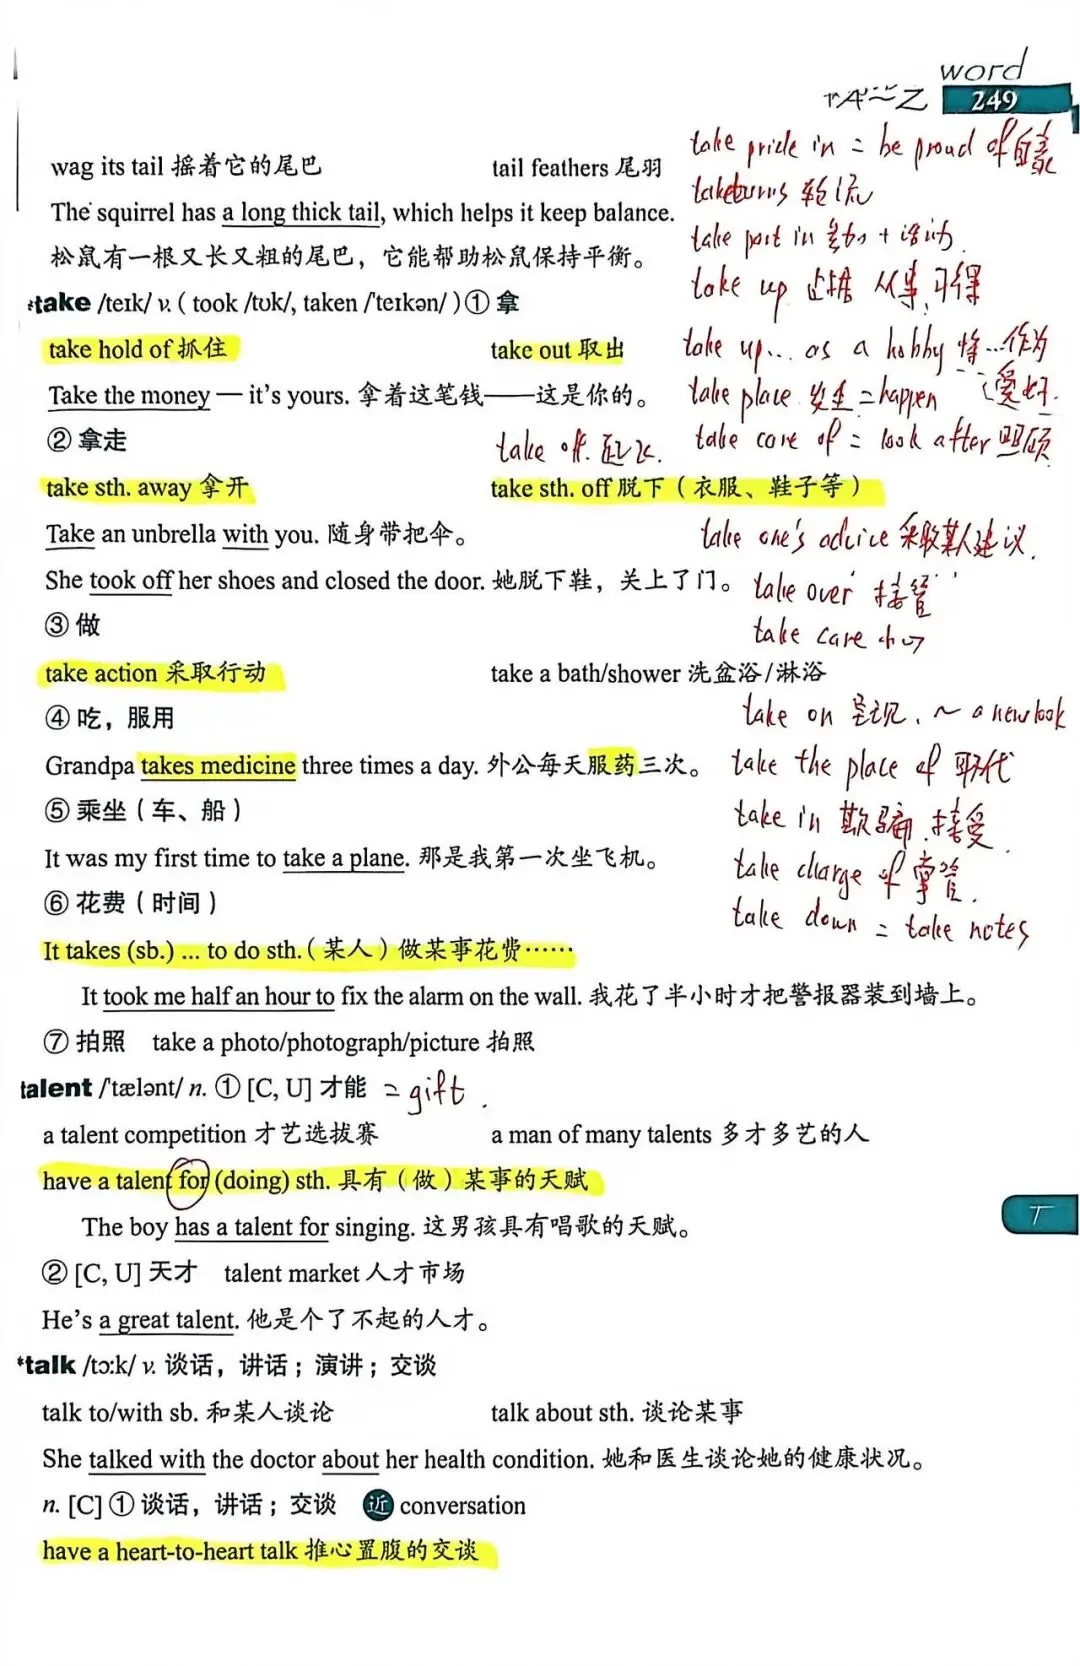 word
249
wag its tail 摇着它的尾巴 tail feathers 尾羽
take pride in = be proud of 自豪
The squirrel has a long thick tail, which helps it keep balance.
take turns 轮流
松鼠有一根又长又粗的尾巴，它能帮助松鼠保持平衡。
take part in 参加+活动
*take /teɪk/ v. ( took /tʊk/, taken /'teɪkən/ ) ① 拿
take up 占据 从事 习得
take hold of 抓住 take out 取出
take up... as a hobby 将...作为爱好.
Take the money — it's yours. 拿着这笔钱——这是你的。
take place 发生 = happen
② 拿走
take off. 起飞.
take care of = look after 照顾
take sth. away 拿开 take sth. off 脱下（衣服、鞋子等）
Take an unbrella with you. 随身带把伞。
take one's advice 采取某人建议.
She took off her shoes and closed the door. 她脱下鞋，关上了门。
take over 接管
③ 做
take care 小心
take action 采取行动 take a bath/shower 洗盆浴/淋浴
④ 吃，服用
take on 呈现. ~ a new look
Grandpa takes medicine three times a day. 外公每天服药三次。
take the place of 取代
⑤ 乘坐（车、船）
take in 欺骗. 接受.
It was my first time to take a plane. 那是我第一次坐飞机。
take charge of 掌管.
⑥ 花费（时间）
take down = take notes
It takes (sb.) ... to do sth.（某人）做某事花费……
It took me half an hour to fix the alarm on the wall. 我花了半小时才把警报器装到墙上。
⑦ 拍照 take a photo/photograph/picture 拍照
talent /'tælənt/ n. ① [C, U] 才能 = gift.
a talent competition 才艺选拔赛 a man of many talents 多才多艺的人
have a talent for (doing) sth. 具有（做）某事的天赋
The boy has a talent for singing. 这男孩具有唱歌的天赋。
T
② [C, U] 天才 talent market 人才市场
He's a great talent. 他是个了不起的人才。
*talk /tɔːk/ v. 谈话，讲话；演讲；交谈
talk to/with sb. 和某人谈论 talk about sth. 谈论某事
She talked with the doctor about her health condition. 她和医生谈论她的健康状况。
n. [C] ① 谈话，讲话；交谈 近 conversation
have a heart-to-heart talk 推心置腹的交谈